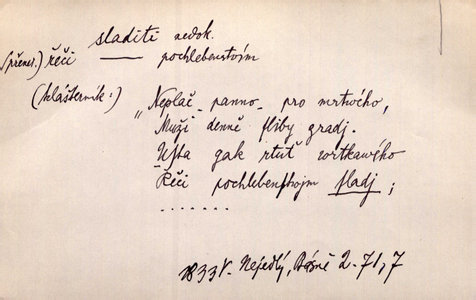 sladiti nedok.
(přenes.) řeči —— pochlebenstvím
(klášterník:)
„Neplač panno pro mrtwého,
Muži denně ſliby gradj.
Uſta gak rtuť wrtkawého
Řeči pochlebenſtwjm ſladj;
.......
1833 V. Nejedlý, Básně 2. 71, 7